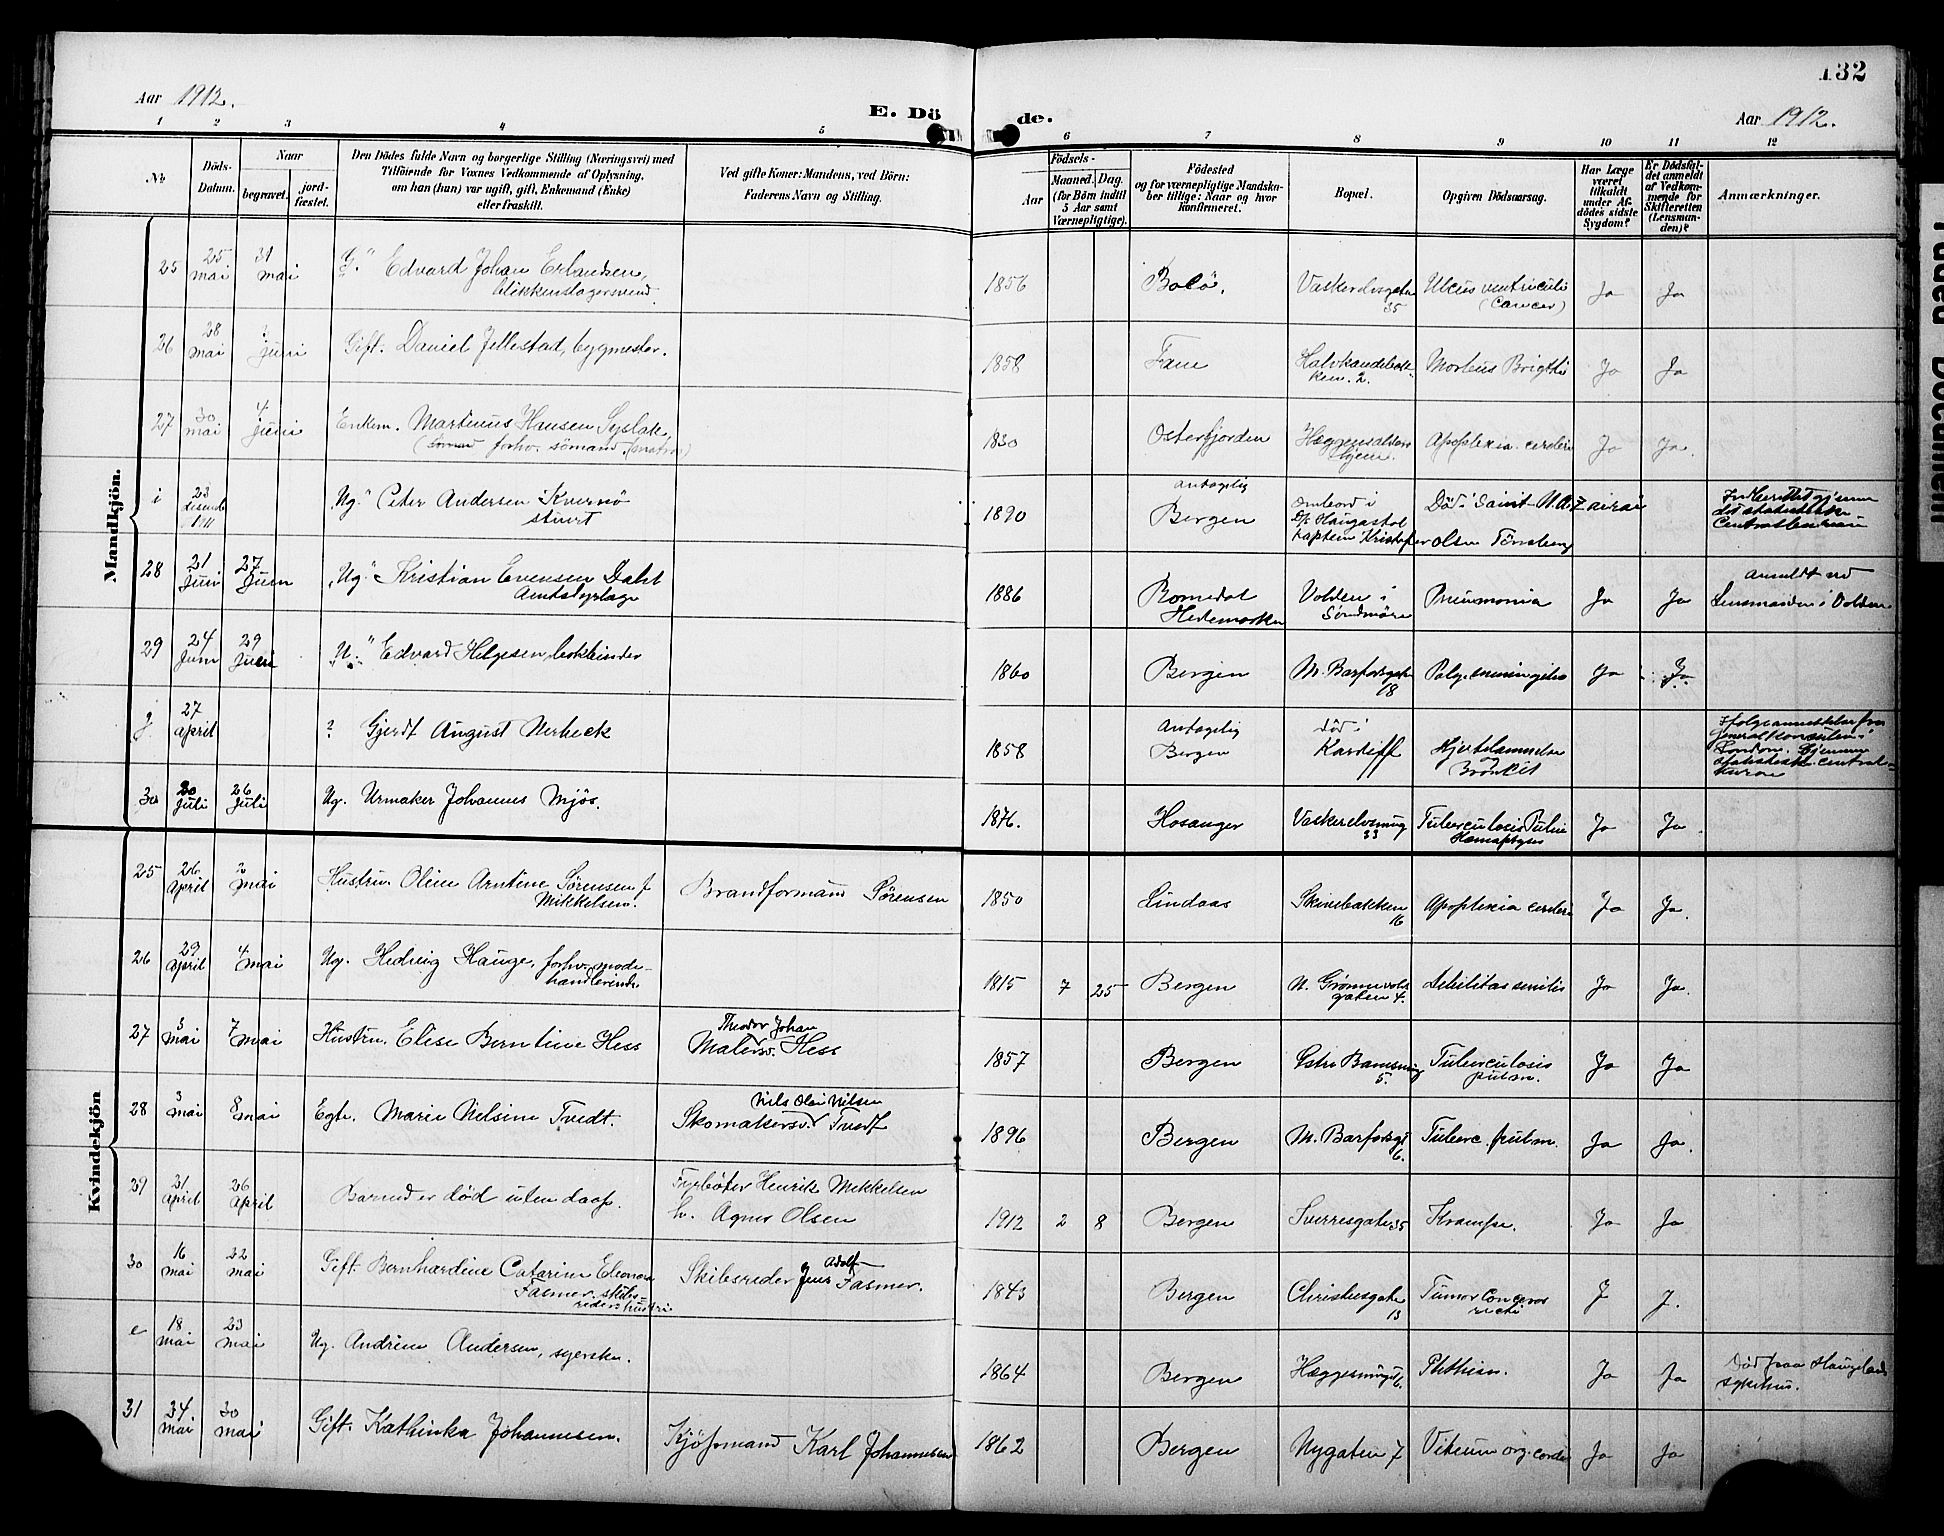 132
Aar 1912.
E. Dö de.
Aar 1912.
1 2 3 4 5 6 7 8 9 10 11 12
No
Döds-Datum.
Naar
begravet.
jord-fæstet.
Den Dödes fulde Navn og borgerlige Stilling (Næringsvei) med
Tilföiende for Voxnes Vedkommende af Oplysning,
om han (hun) var ugift, gift, Enkemand (Enke)
eller fraskilt.
Ved gifte Koner: Mandens, ved Börn:
Faderens Navn og Stilling.
Födsels-
Aar
Maaned. Dag.
(for Börn indtil
5 Aar samt
Værnepligtige).
Födested
og for værnepligtige Mandska-
ber tillige: Naar og hvor
konfirmeret.
Bopæl.
Opgiven Dödsaarsag.
Har Læge
været
tilkaldt
under Af-
dödes sidste
Sygdom?
Er Dödsfal-
det anmeldt
af Vedkom-
mende for
Skifteretten
(Lensman-
den)?
Anmærkninger.
Mandkjön.
25 25 mai 31 mai Edvard Johan Erlandsen, blikkenslagersvend 1856 Bolö. Vaskerelvsgaten 35 Ulcus ventriculi (Cancer) Ja Ja
26 28 mai Juni Gift. Daniel Jellestad, bygmester. 1858 Fane Halvkandebakken. 2. Morbus Brigthi Ja Ja
27 30 mai 4 Juni Enkem. Martinus Hansen forhv. sömand (matros) 1830 Osterfjorden Hjem. Apoplexia cerebri Ja Ja.
i 23 1911 Ug. Peter Andersen Kvernö stuert 1890 antagelig Bergen ombord i D/s Haugastöl kaptein Kristofer Olsen Tönsberg Död i Saint Nazaire Indberettet gjennem det statistiske Centralbureau
28 21 Juni 27 Juni Ug. Kristian Evensen Dahl Amtsdyrlæge 1886 Romedal Hedemarken Volden i Söndmöre Pneumonia Ja Ja Anmeldt ved Lensmanden i Volden
29 24 Juni 29 Juni U. Edvard Helgesen, bokbinder 1860 Bergen M. Barfodsgaten 18 Ja Ja
j. 27 april ? Gjerdt August Verbeck 1858 antagelig Bergen död i Kardiff Hjertelammelse og Bronkit Ifølge anmeldelse fra Generalkonsulen i London. Gjennem statistisk centralbureau
30 20 Juli 26 Juli Ug. Urmaker Johannes Mjös. 1876. Hosanger Vaskerelvsmug 33 Tuberculosis Pulm Hæmoptyses Ja Ja.
Kvindekjön
25 26 April 2 mai Hustru. Oline Arntine Sørensen f. Mikkelsen. Brandformand Sørensen 1850 Lindaas Skivebakken 16 Apoplexia cerebri Ja Ja.
26 29 April 4 mai Ug. Hedvig Hauge, forhv. modehandlerinde 1815 7 25 Bergen N. Grønnevolsgaten 4. Debilitas senilis Ja Ja.
27 3 mai 7 mai Hustru. Elise Berntine Hess Theodor Johan Malersv. Hess 1857 Bergen 5. Tuberculosis pulm. Ja Ja
28 3 mai 8 mai Egte. Marie Nelsine Tvedt. Nils Olai Nilsen Skomakersv. Tvedt 1896 Bergen M. Barfodsgt 6. Tuberc. pulm. Ja Ja.
29 21 April 26 April Barnet er död uten daap. Fyrböter Henrik Mikkelsen h. Agnes Olsen 1912 2 8 Bergen Sverresgate 35 Krampe. Ja Ja
30 16 mai 22 mai Gift. Bernhardine Catarine Eleonora Fasmer. skibsrederhustru Skibsreder Jens Adolf Fasmer. 1843 Bergen Christiesgate 13 Tumor recti J J.
e 18 mai 23 mai Ug. Andrine Andersen, syerske. 1864 Bergen 6. Phthisis. Ja Ja Död paa Haugeland sykehus.
31 24 mai 30 mai Gift. Kathinka Johannesen. Kjöpmand Karl Johannesen 1862 Bergen Nygaten 7 Vitium org. cordis Ja Ja